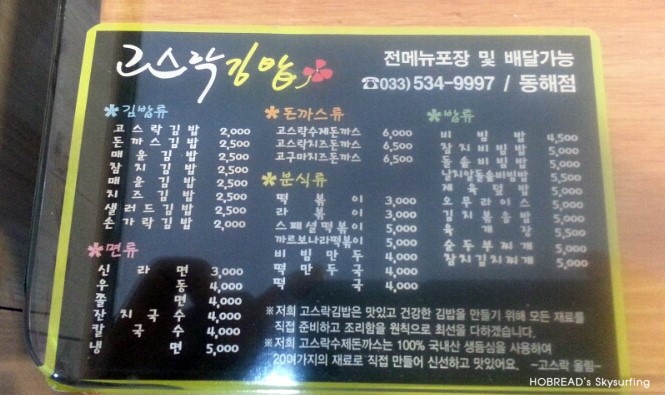 고스락김밥
전메뉴포장 및 배달가능
☎033) 534-9997 / 동해점
*김밥류
고스락김밥 2,000
돈까스김밥 2,500
매운김밥 2,500
참치김밥 2,500
매운김밥 2,500
치즈김밥 2,500
샐러드김밥 2,500
손가락김밥 2,000
*면류
신라면 3,000
우동 4,000
쫄면 4,000
잔치국수 4,000
칼국수 4,000
냉면 5,000
*돈까스류
고스락수제돈까스 6,000
고스락치즈돈까스 6,500
고구마치즈돈까스 6,500
*분식류
떡볶이 3,000
라볶이 3,000
스페셜떡볶이 5,000
까르보나라떡볶이 5,000
비빔만두 4,000
떡만두국 4,000
떡국 4,000
*밥류
비빔밥 4,500
참치비빔밥 5,000
돌솥비빔밥 5,000
날치알돌솥비빔밥 5,500
제육덮밥 5,000
오무라이스 5,000
김치볶음밥 5,000
육개장 5,500
순두부찌개 5,000
참치김치찌개 5,000
※저희 고스락김밥은 맛있고 건강한 김밥을 만들기 위해 모든 재료를
직접 준비하고 조리함을 원칙으로 최선을 다하겠습니다.
※저희 고스락수제돈까스는 100% 국내산 생등심을 사용하여
20여가지의 재료로 직접 만들어 신선하고 맛있어요. -고스락 올림-
HOBREAD's Skysurfing